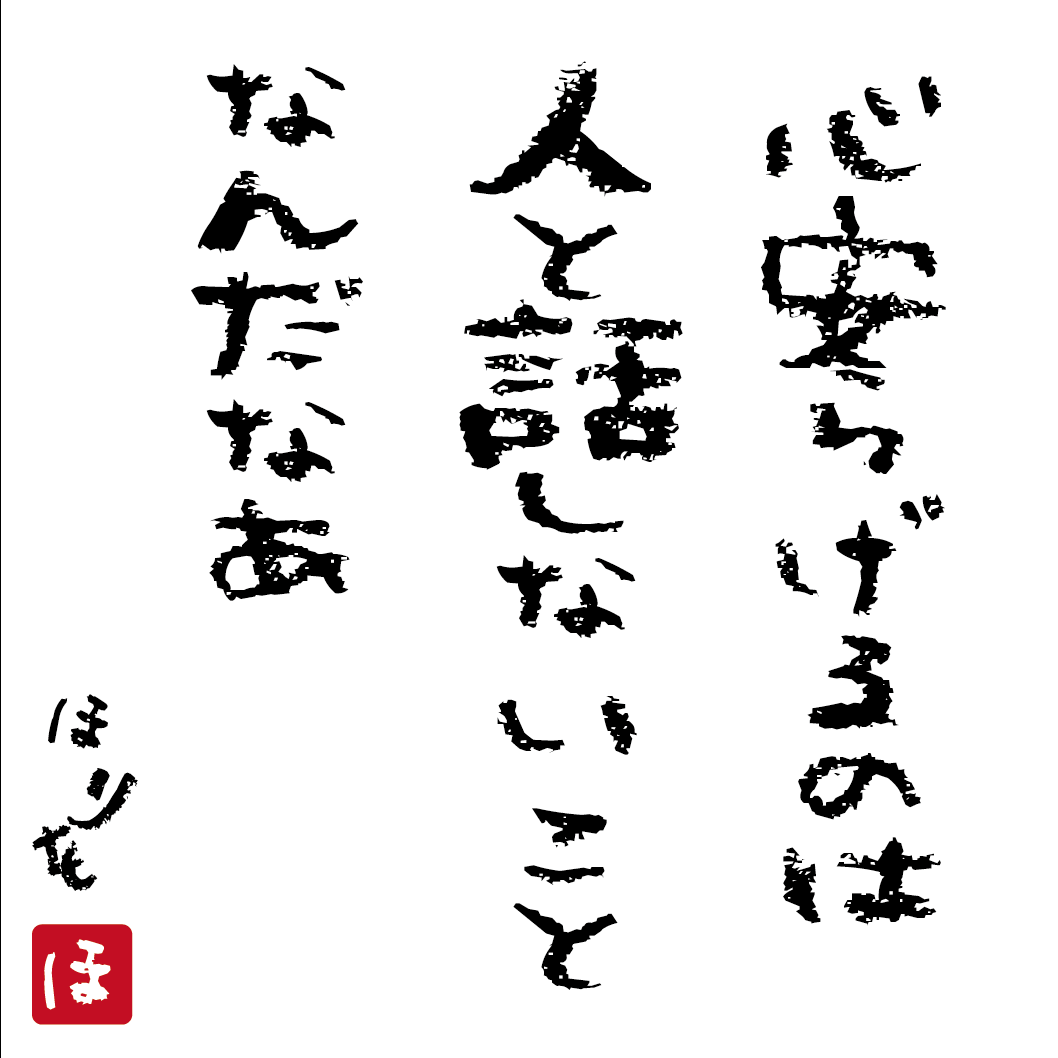 心安らげるのは
人と話しないこと
なんだなあ
ほりを
ほ